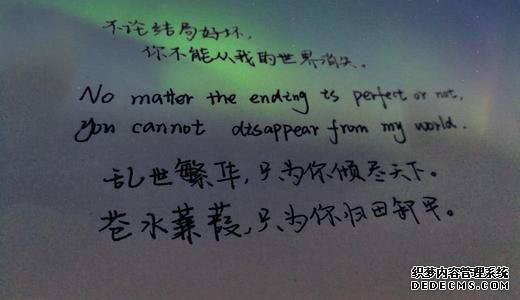 不论结局好坏,
你不能从我的世界消失。
No matter the ending is perfect or not,
you cannot disappear from my world.
乱世繁华,只为你倾尽天下。
苍水蒹葭,只为你归田卸甲。
织梦内容管理系统
DEDECMS.COM